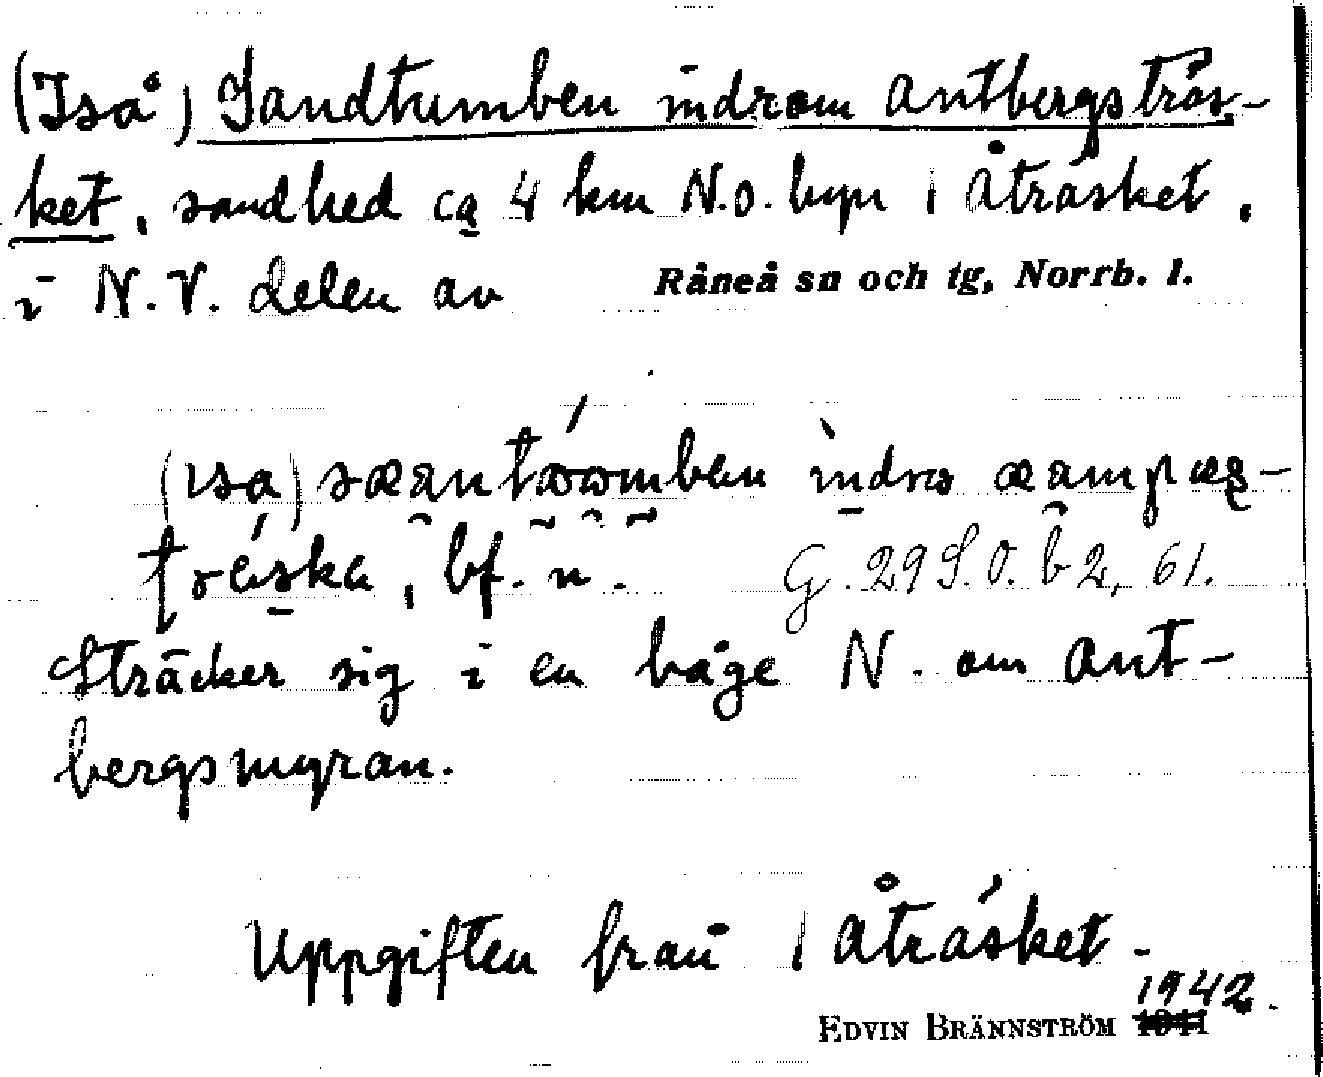 (Iså) Sandtumben indrom Antbergsträs-
ket, sandhed ca 4 km N.O. byn i Åträsket,
i N.V. delen av Råneå sn och tg, Norrb. l.
(ısa) sæantɷɷmben indrɷ æampæs-
træska, bf. n. G. 29 S.O. b 2, 61.
Sträcker sig i en båge N. om Ant-
bergsmyran.
Uppgiften från i Åträsket.
1942.
EDVIN BRÄNNSTRÖM 1941